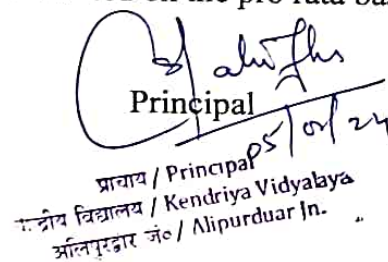 on the pro rata ba
Principal
05/0 / 24
प्राचार्य / Principal
द्रीय विद्यालय / Kendriya Vidyalaya
अलिपुरद्वार जं० / Alipurduar Jn.